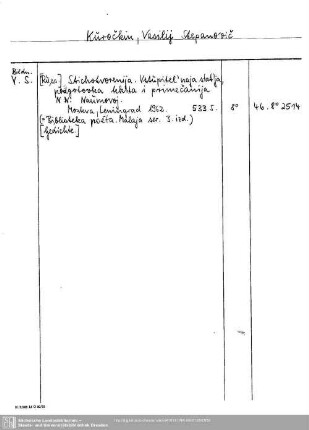 Kuročkin, Vasilij Stepanovič
[Russ.] Stichotvorenija. Vstupitel'naja stat'ja,
V. S. podgotovka teksta i primečanija
N. N. Naumovoj.
Moskva, Leningrad 1962. 533 S. 8° 46. 8° 2514
(= Biblioteka poėta. Malaja ser. 3. izd.)
[Gedichte]